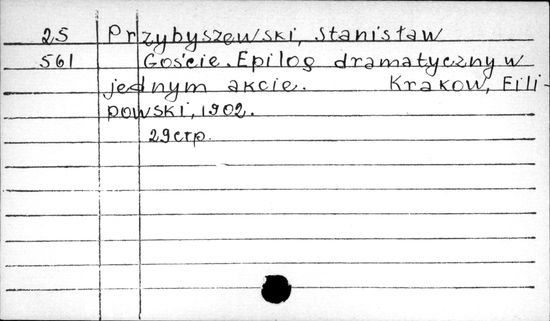 25 Przybyszewski, Stanisław
561 Goście. Epilog dramatyczny w
jednym akcie. Krakow, Fili-
powski, 1902.
29 стр.